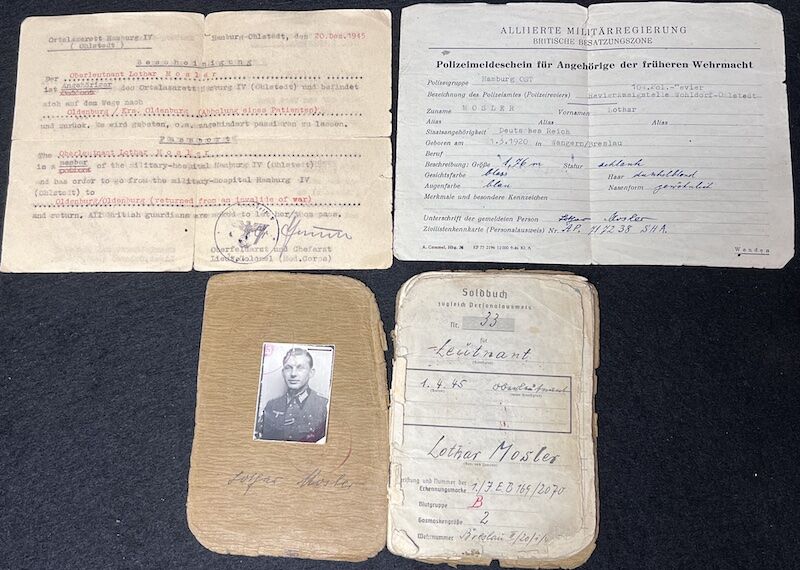 Ortslazarett Hamburg IV
( Ohlstedt )
Hamburg-Ohlstedt, den 20.Dez.1945
Bescheinigung
Der Oberleutnant Lothar Mosler
ist Angehöriger des Ortslazarett Hamburg IV (Ohlstedt) und befindet
sich auf dem Wege nach
Oldenburg / Krs. Oldenburg (Abholung eines Patienten)
und zurück. Es wird gebeten, o.a. ungehindert passieren zu lassen.
The Oberleutnant Lothar Mosler
is a member of the military-hospital Hamburg IV (Ohlstedt)
and has order to go from the military-hospital Hamburg IV
(Ohlstedt) to
Oldenburg/Oldenburg (returned from an invalite of war)
and return. All british guardians are asked to let her/him pass.
Oberfeldarzt und Chefarzt
Lieut.Colonel (Med.Corps)
ALLIIERTE MILITÄRREGIERUNG
BRITISCHE BESATZUNGSZONE
Polizeimeldeschein für Angehörige der früheren Wehrmacht
Polizeigruppe Hamburg OST
Bezeichnung des Polizeiamtes (Polizeireviers) Wohldorf-Ohlstedt
Zuname MOSLER Vornamen Lothar
Alias Alias Alias
Staatsangehörigkeit Deutsches Reich
Geboren am 1.3.1920 in Wangern/Breslau
Beruf
Beschreibung: Größe 1,76 m Statur schlank
Gesichtsfarbe blass Haar dunkelblond
Augenfarbe blau Nasenform gewöhnlich
Merkmale und besondere Kennzeichen
Unterschrift der gemeldeten Person Lothar Mosler
Zivilistenkennkarte (Personalausweis) Nr. AP. 717238 SHA.
Wenden
Lothar Mosler
Soldbuch
zugleich Personalausweis
Nr. 33
für
Leutnant
1.4.45 Oberleutnant
Lothar Mosler
Beschriftung und Nummer der
Erkennungsmarke 1./J.E.B 169/2070
Blutgruppe B
Gasmaskengröße 2
Wehrnummer Breslau